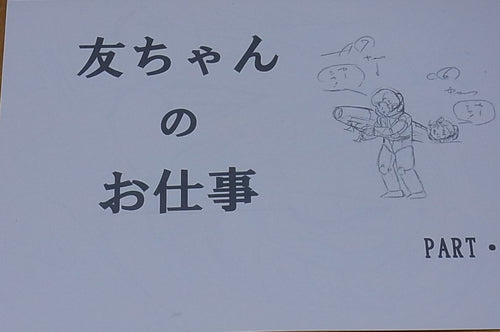 友ちゃん
の
お仕事
PART・